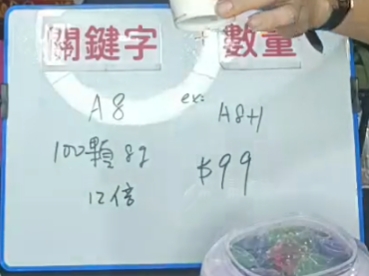 關鍵字 + 數量
A8 ex: A8+1
100顆 8g $99
12倍